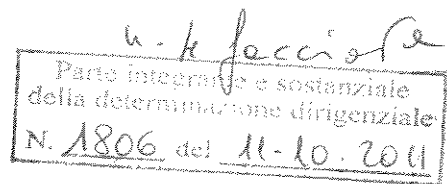 n. 4 facciate
Parte integrante e sostanziale
della determinazione dirigenziale
N. 1806 del 11-10.2011